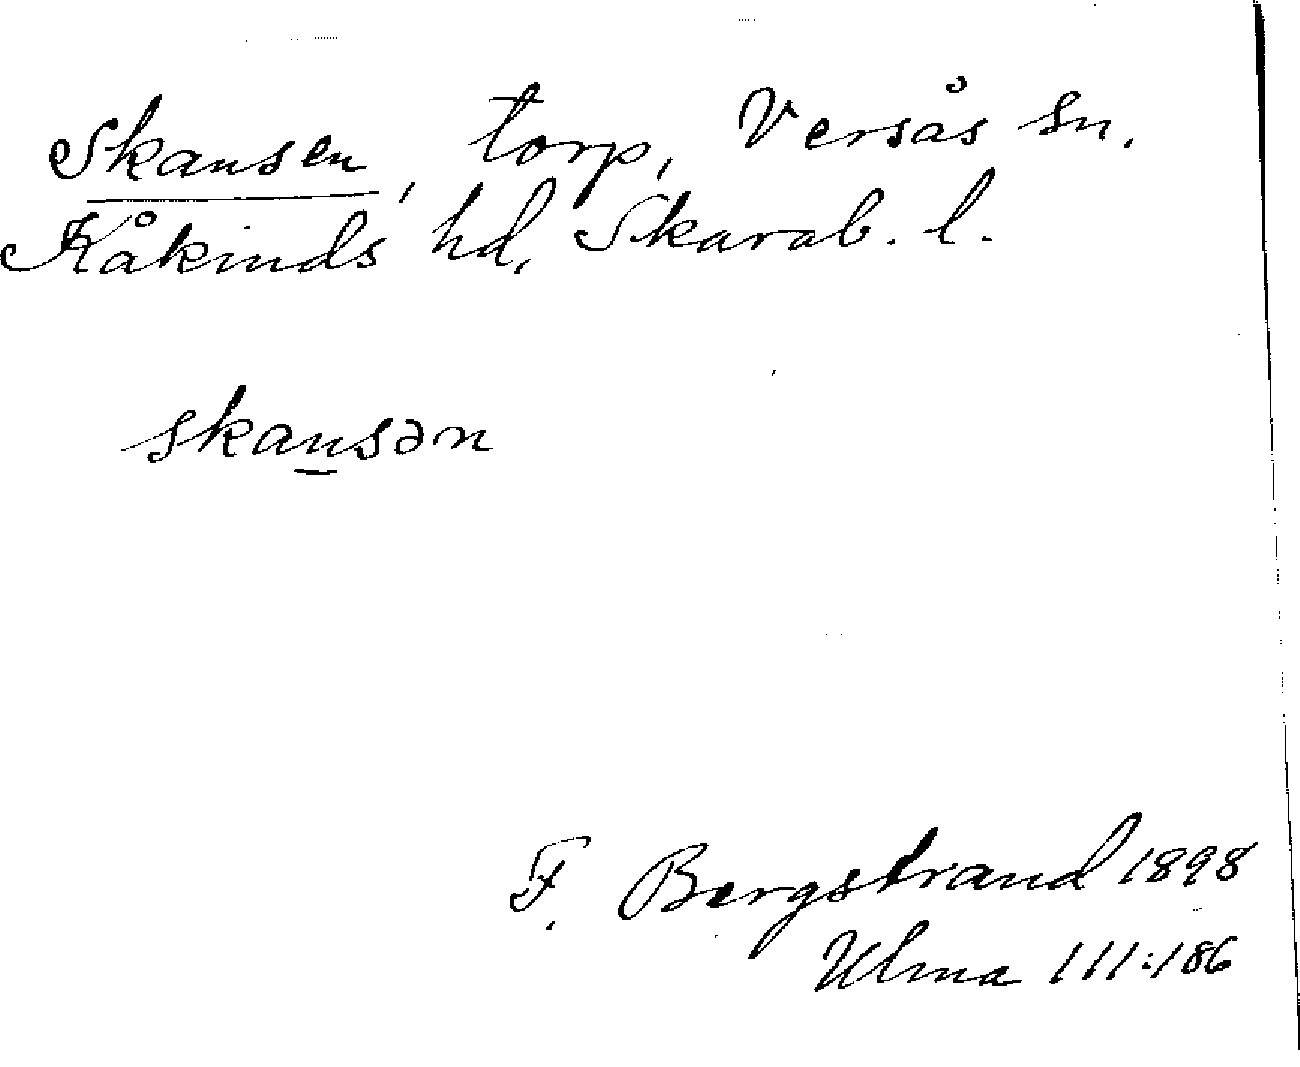 Skansen, torp, Versås sn.
Kåkinds hd, Skarab. l.
skansən
F. Bergstrand 1898
Ulma 111:186